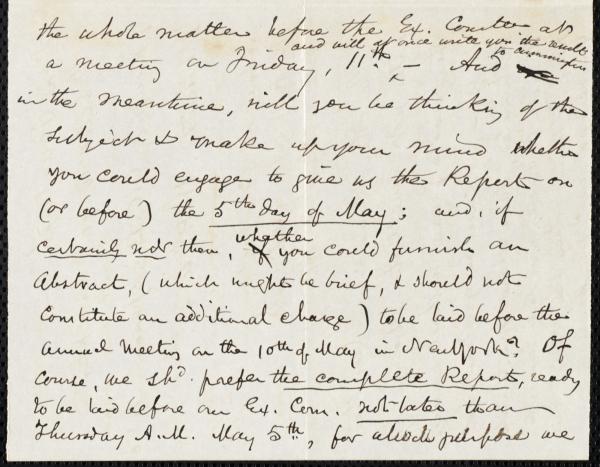 the whole matter before the Ex. Comtee at
and will at once write you the result
a meeting on Friday, 11th. – And
in the meantime, will you be thinking of the
subject & make up your mind whether
you could engage to give us the Report on
(or before) the 5th day of May; and, if
certainly not then, whether you could furnish an
Abstract, (which might be brief, & should not
constitute an additional charge) to be laid before the
annual meeting on the 10th of May in New York? Of
course, we shd. prefer the complete Report, ready
to be laid before our Ex. Com. not later than
Thursday A.M. May 5th, for which purpose we